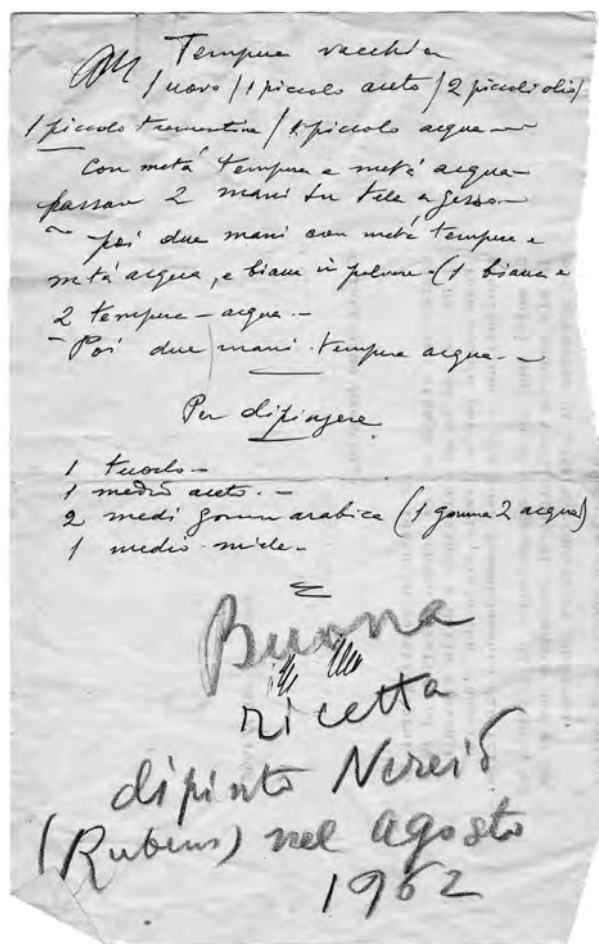 Tempera vecchia
1 uovo / 1 piccolo aceto / 2 piccoli olio /
1 piccolo trementina / 1 piccolo acqua —
Con metà tempera e metà acqua —
passare 2 mani su tela a gesso —
~ poi due mani con metà tempera e
metà acqua, e bianco in polvere - (1 bianco e
2 tempera - acqua . -
- Poi due mani tempera acqua . -
Per dipingere
1 tuorlo -
1 medio aceto . -
2 medi gomma arabica (1 gomma 2 acqua)
1 medio miele -
Buona
ricetta
dipinto Nereidi
(Rubens) nel agosto
1962